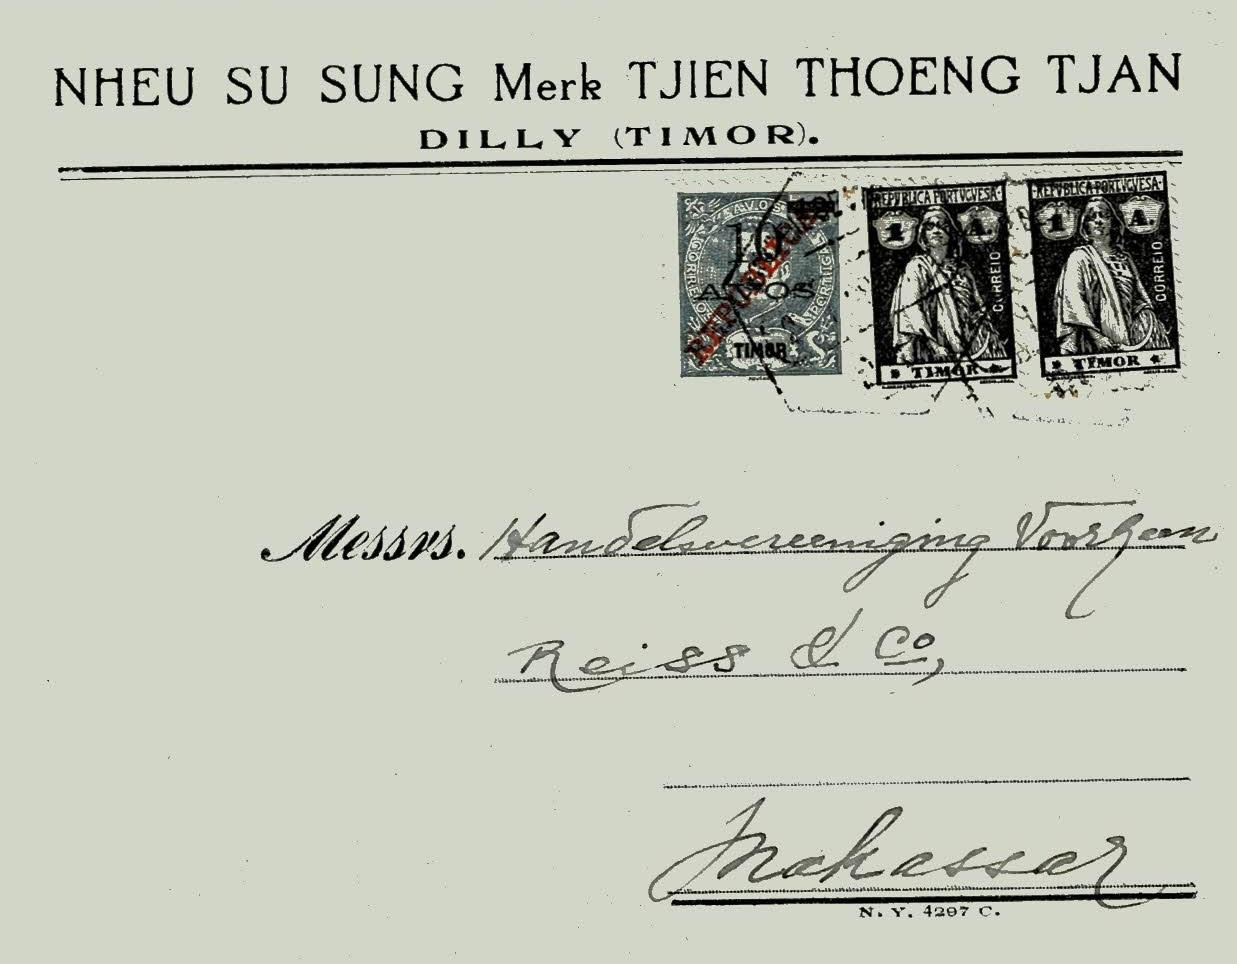 NHEU SU SUNG Merk TJIEN THOENG TJAN
DILLY (TIMOR).
CORREIO AVOS PORTUGAL
10
AVOS
REPUBLICA
TIMOR
REPVBLICA PORTVGVESA
1 A.
CORREIO
TIMOR
REPVBLICA PORTVGVESA
1 A.
CORREIO
TIMOR
Messrs. Handelsvereeniging Voorheen
Reiss & Co,
Makassar
N. Y. 4297 C.